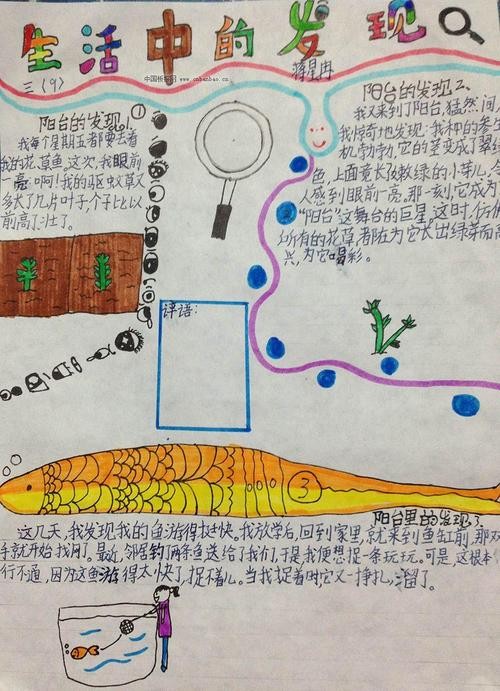 生活中的发现
中国板报网 www.cnbanbao.cn
三(9)
蒋星冉
阳台的发现1
我每个星期五都要去看
我的花草鱼。这次,我眼前
一亮:啊!我的驱蚊草又
多大了几片叶子,个子比以
前高了,壮了。
阳台的发现2、
我又来到了阳台,猛然间
我惊奇地发现:我种的参生
机勃勃,它的茎变成了翠绿
色,上面竟长嫩绿的小芽儿,令
人感到眼前一亮。那一刻它成为
“阳台”这舞台的巨星。这时,仿佛
所有的花草都在为它长出绿芽而高
兴,为它喝彩。
评语:
3
阳台里的发现3
这几天,我发现我的鱼游得挺快。我放学后,回到家里,就来到鱼缸前,那双
手就开始找网了。最近,邻居钓两条鱼送给了我们,于是,我便想捉一条玩玩。可是,这根本
行不通,因为这鱼游得太快了,捉不着儿。当我捉着时它又一挣扎,溜了。